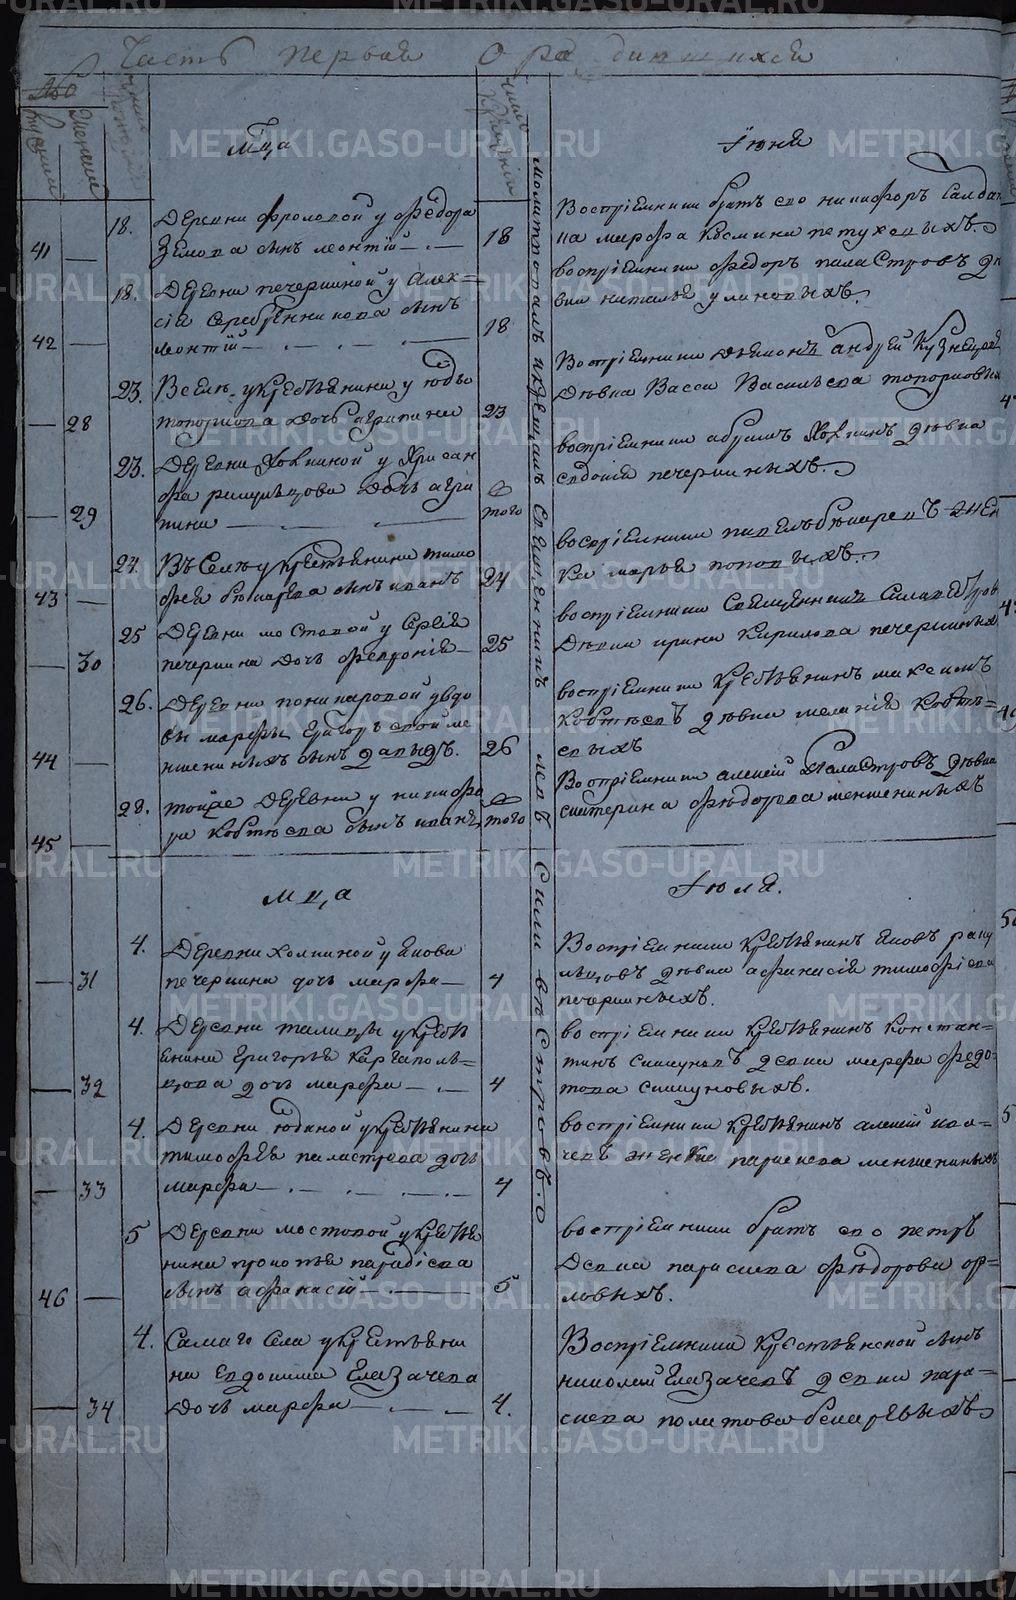 Часть первая о родившихся
число крещенія
мца
Іюня
41
18.
Деревни Фроловой у Федора
Земова сынъ леонтій
18
Воспріемники братъ его никифоръ Салдат
ка марфа Космина петуховыхъ.
42
18.
Деревни печеркиной у Алек=
сія Серебренникова сынъ
леонтій
18
воспріемники федоръ паластровъ д
вка наталья улиновыхъ.
28
23.
Всель укрестьянина у Іова
топоркова дочь агрипина
23
Воспріемники дьяконъ андрей Кузнецов
дѣвка Васса Васильева топорковых
29
23.
Деревни Холкиной у Хрисан
фа ращупцова дочь агри
пина
того
воспріемники абрамъ Холкинъ дѣвка
евдокія печеркиныхъ.
43
24.
Въ Селѣ у крестьянина тимо
фея бѣкарева сынъ иванъ
24
воспріемники павелъ бѣкаревъ жен
ка марья поповыхъ.
30
25
Деревни мостовой у Сергія
печеркина дочь февронія
25
воспріемники Священникъ Сила петров
Дѣвки ирина Кирилова печеркиныхъ
44
26.
Деревни поникаровой у вдо
вы марфы Григорьевой ме
ншениныхъ сынъ давыдъ.
26
воспріемники Крестьянинъ максимъ
Ковтѣевъ дѣвка меланія Ковтѣ=
евыхъ
45
28.
тойже Деревни у никифо
ра Ковтѣева сынъ иванъ
того
Воспріемники алексій паластровъ дѣвка
екатерина Федорова меншениныхъ
молитвовалъ и крещалъ Священникъ левъ Силивѣстровъ.
мца
Іюля.
31
4.
Деревни холкиной у Якова
печеркина дочь марфа
4
Воспріемники Крестьянинъ яковъ ращу
пцовъ дѣвка афанасія тимофѣева
печеркиныхъ.
32
4.
Деревни талицы укресть
янина Григорья Каргаполь=
цова дочь марфа
4
воспріемники Крестьянинъ Констан=
тинъ Сишуновъ девка марфа федо=
това Сишуновыхъ.
33
4.
Деревни юдиной укрестьянина
тимофея паластрова дочь
марфа
4
воспріемники Крестьянинъ алексій ка=
чевъ женка парасева меншениныхъ
46
5
Деревни мостовой укрестья
нина прокопья парадѣева
сынъ афанасій
5
воспріемники братъ его петръ
Девка парасева Федорова ор=
ловыхъ.
34
4.
Самаго села укрестьяни
на Евдокима Глазачева
дочь марфа
4.
Воспріемники Крестьянской сынъ
николай Глазачевъ девка пара=
сева политова бекаревыхъ
METRIKI.GASO-URAL.RU